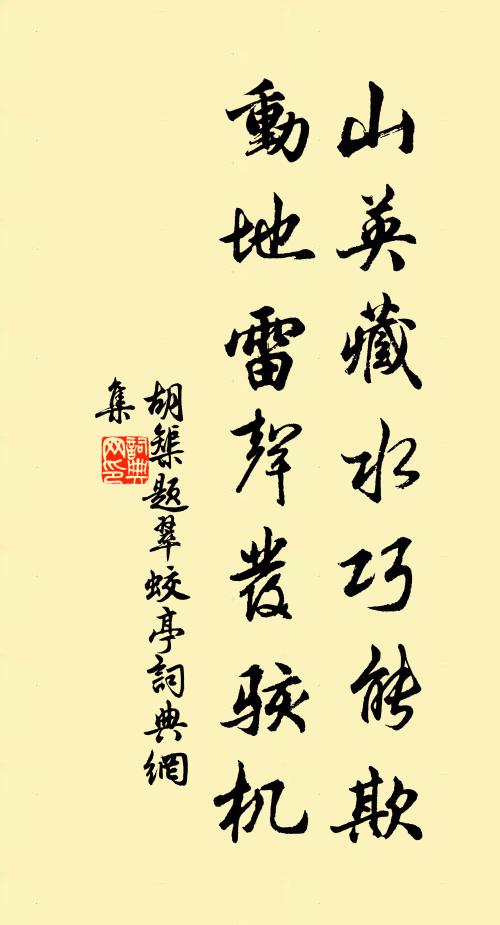 山英藏水巧能欺
動地雷聲發駭机
胡榘题翠蛟亭詞典網
集
詞典网印